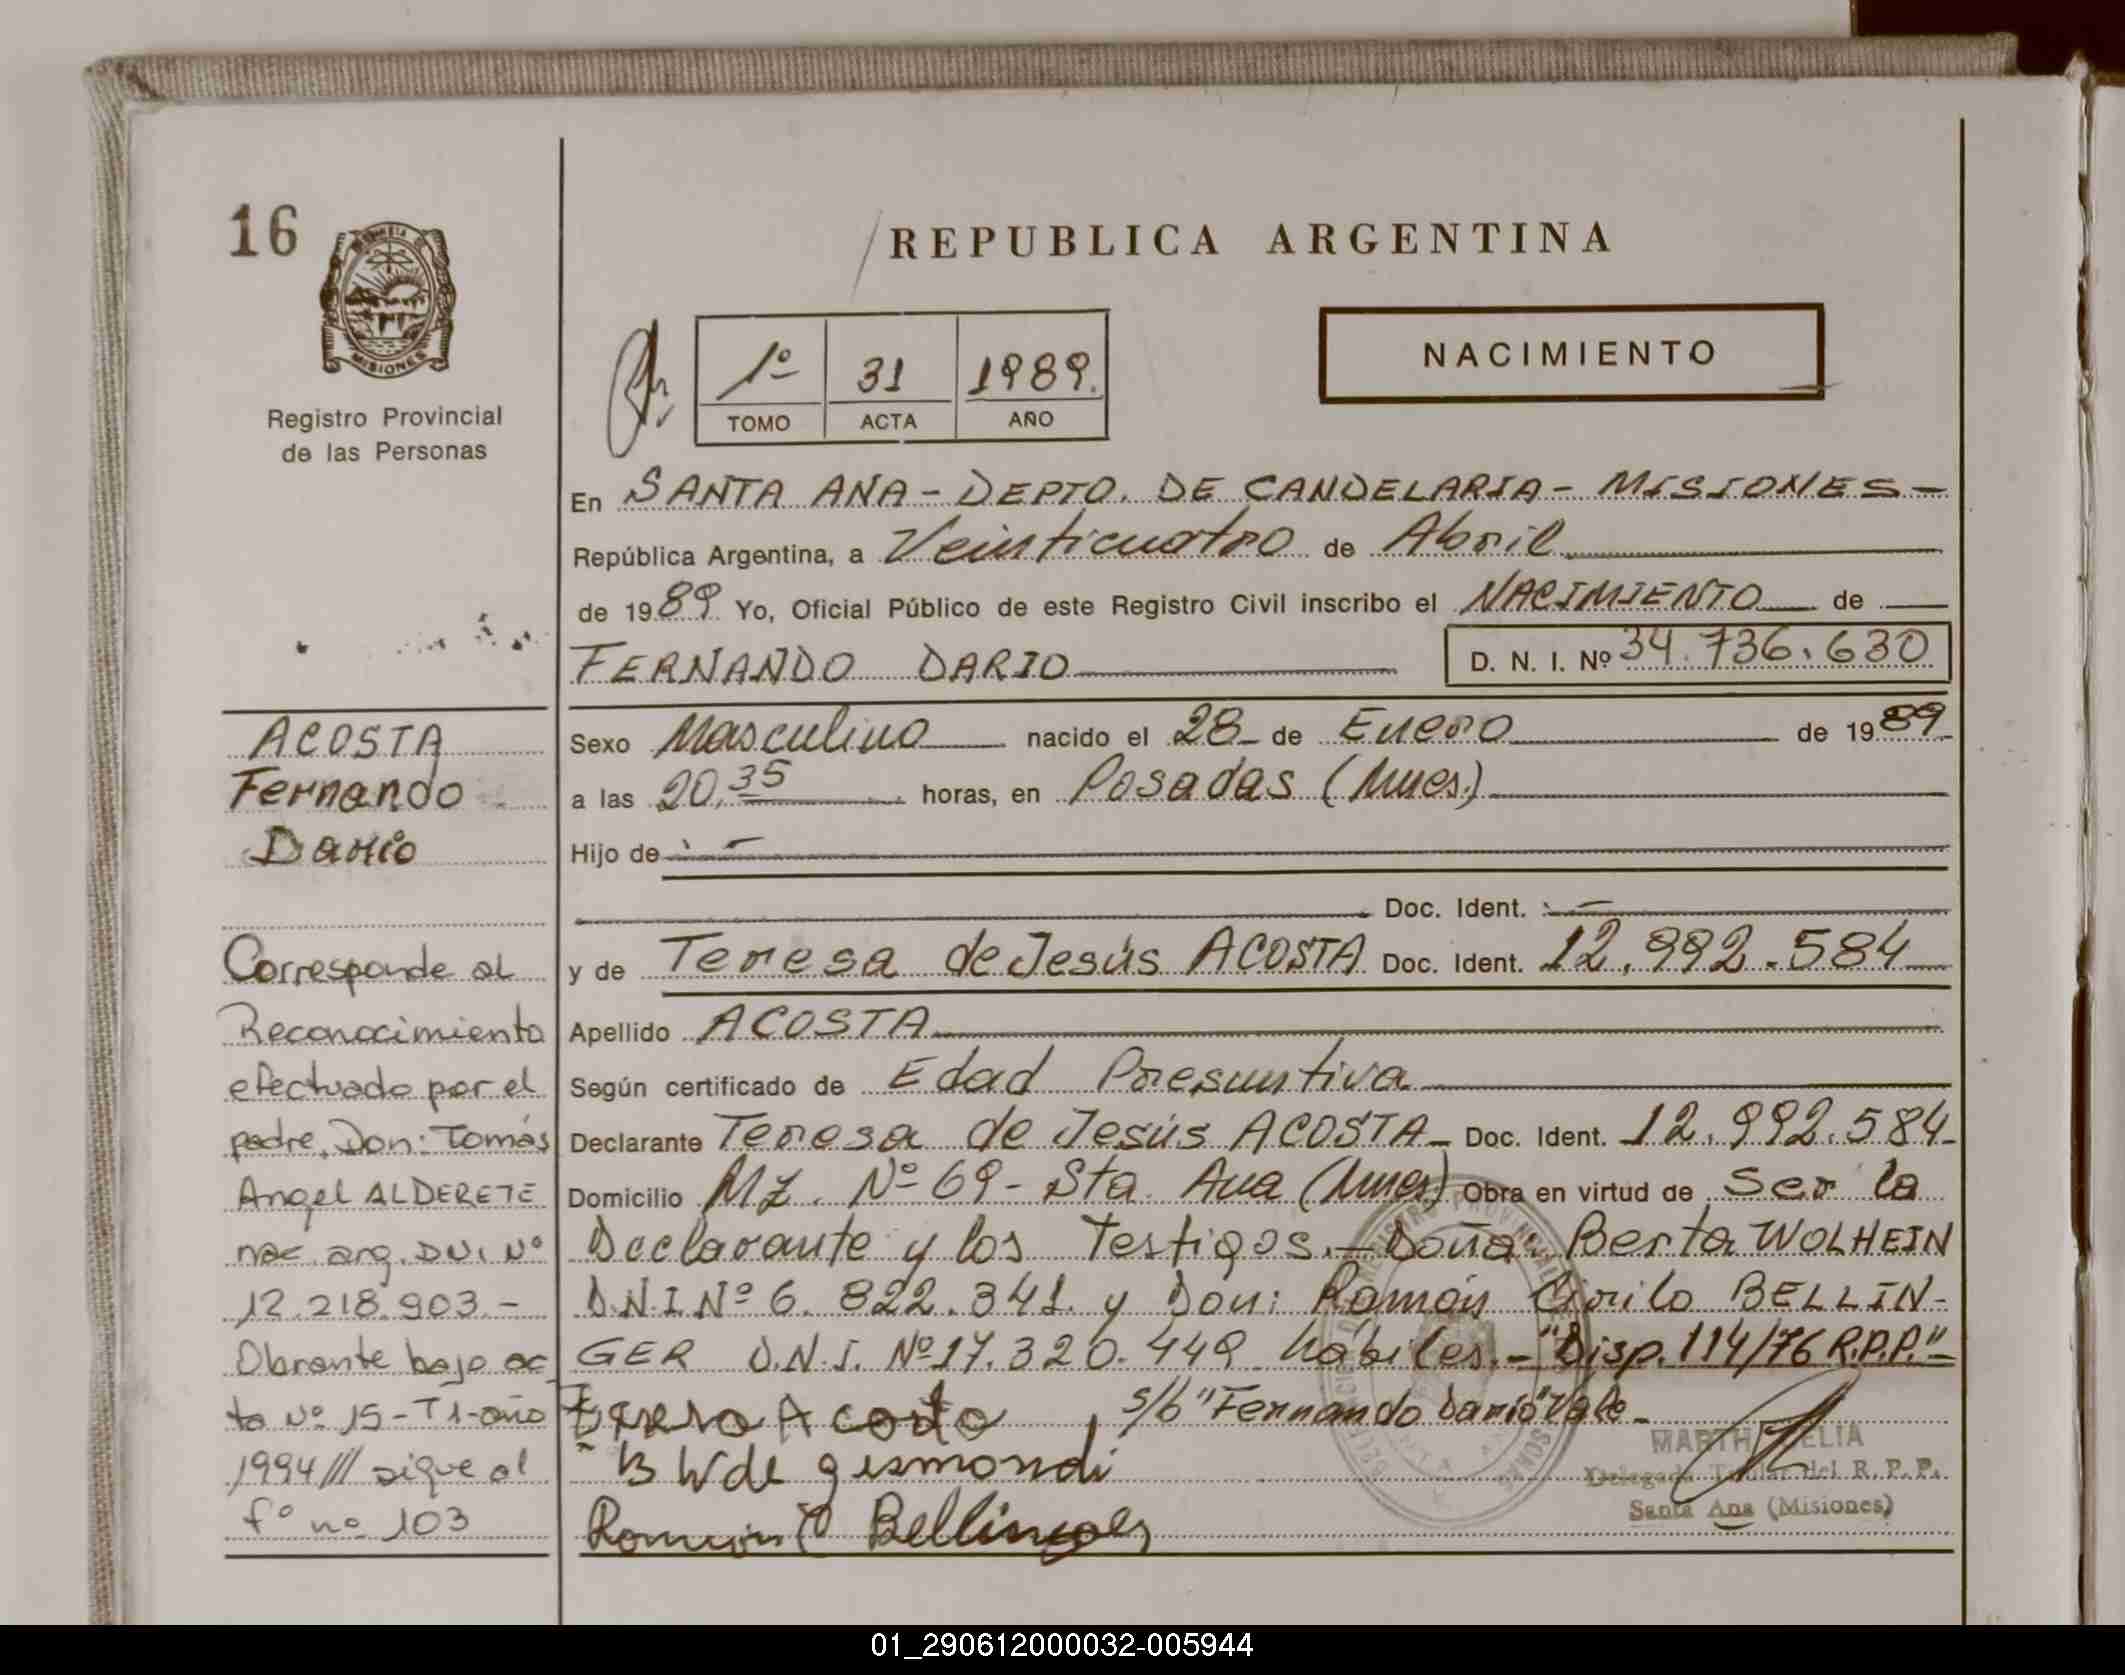 16
REPUBLICA ARGENTINA
MISIONES
Registro Provincial
de las Personas
1º 31 1989.
TOMO ACTA AÑO
NACIMIENTO
En SANTA ANA - DEPTO. DE CANDELARIA - MISIONES -
República Argentina, a Veinticuatro de Abril
de 1989 Yo, Oficial Público de este Registro Civil inscribo el NACIMIENTO de
FERNANDO DARIO D. N. I. Nº 34.736.630
Sexo Masculino nacido el 28 de Enero de 1989
a las 20,35 horas, en Posadas (Mnes.)
Hijo de
Doc. Ident.
y de Teresa de Jesús ACOSTA Doc. Ident. 12.992.584
Apellido ACOSTA
Según certificado de Edad Presuntiva
Declarante Teresa de Jesús ACOSTA - Doc. Ident. 12.992.584-
Domicilio Mz. Nº 69 - Sta. Ana (Mnes) Obra en virtud de Ser la
Declarante y los Testigos.- Doña: Berta WOLHEIN
D.N.I Nº 6.822.341. y Don: Ramón Cirilo BELLIN-
GER D.N.I. Nº 17.320.449 hábiles.- "Disp. 114/76 R.P.P."-
Acosta s/b "Fernando Dario" Vale-
B W de gismondi
Ramón C Bellinger
MARTH ELIA
Delegada Titular del R. P. P.
Santa Ana (Misiones)
ACOSTA
Fernando
Darío
Corresponde al
Reconocimiento
efectuado por el
padre, Don: Tomás
Angel ALDERETE
nac. arg. DNI Nº
12.218.903.-
Obrante bajo ac
ta Nº 15 - T1 - año
1994 /// sigue al
fº nº 103
01_290612000032-005944